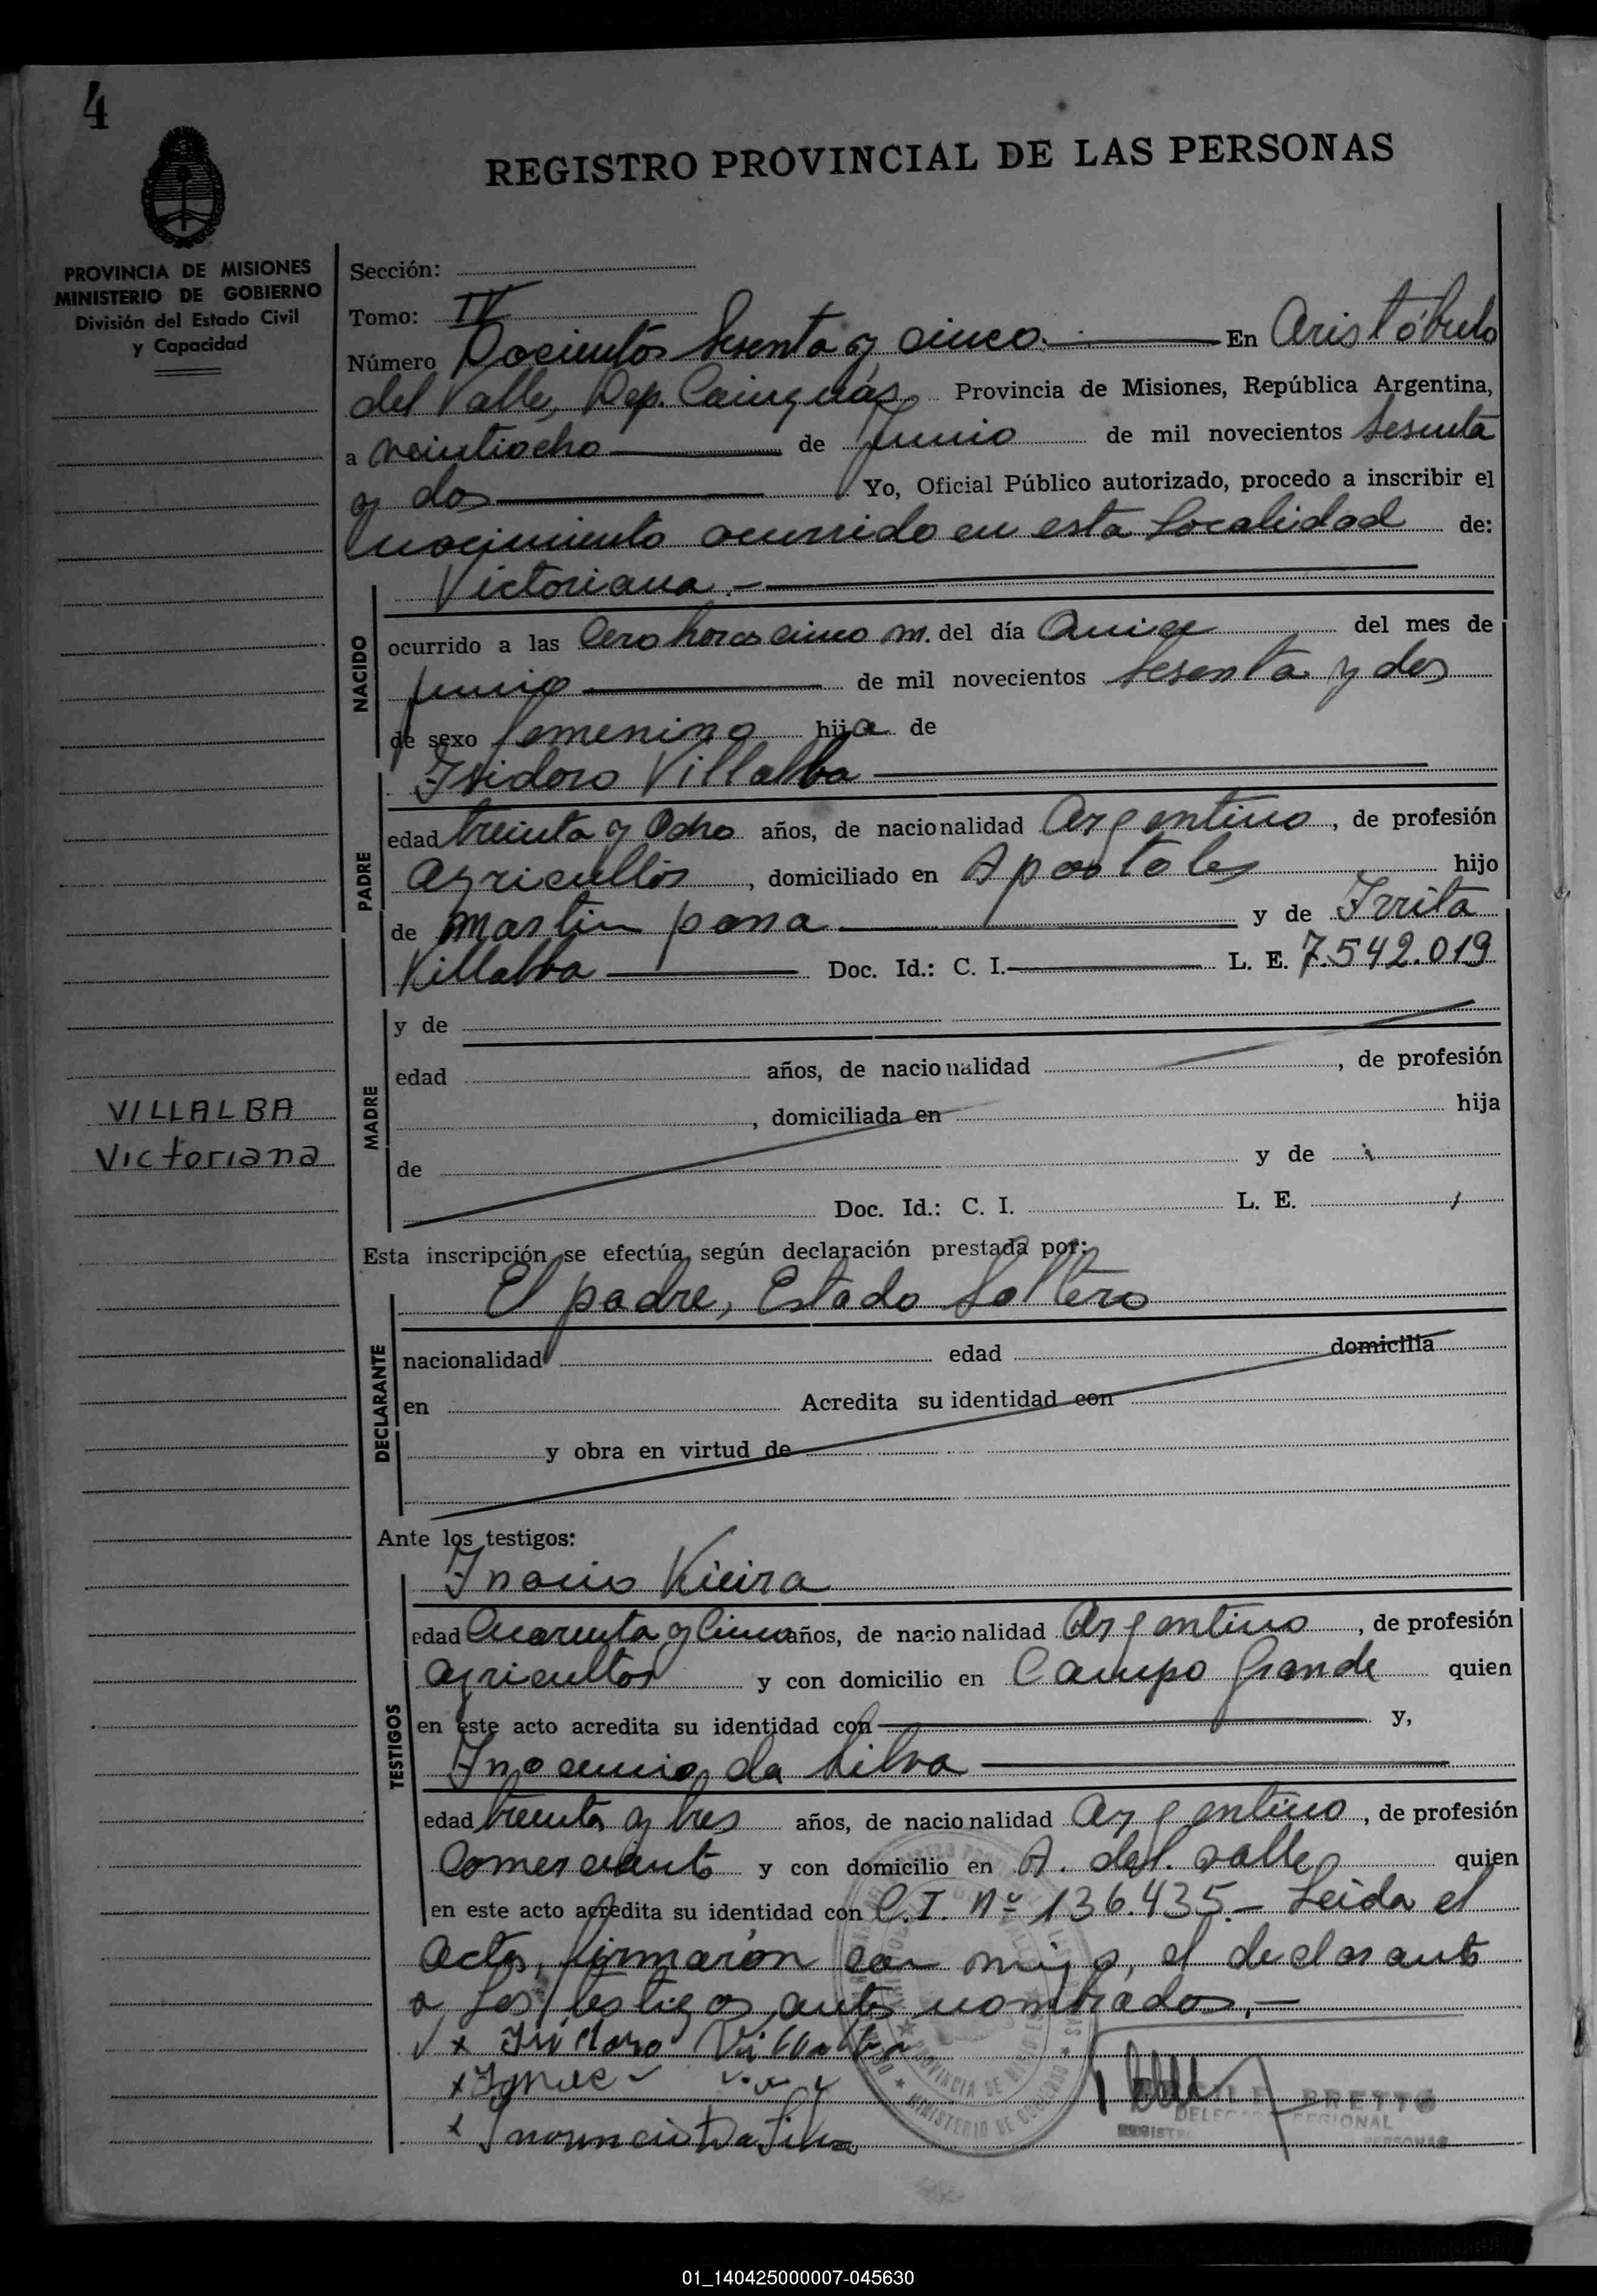 4
REGISTRO PROVINCIAL DE LAS PERSONAS
PROVINCIA DE MISIONES
MINISTERIO DE GOBIERNO
División del Estado Civil
y Capacidad
Sección:
Tomo: IV
Número Docientos Sesenta y cinco. En Aristóbulo
del Valle, Dep. Cainguás Provincia de Misiones, República Argentina,
a veintiocho de Junio de mil novecientos Sesenta
y dos Yo, Oficial Público autorizado, procedo a inscribir el
nacimiento ocurrido en esta Localidad de:
NACIDO
Victoriana.-
ocurrido a las Cero horas cinco m. del día Quince del mes de
Junio de mil novecientos Sesenta y dos
de sexo femenino hija de
PADRE
Isidoro Villalba
edad treinta y Ocho años, de nacionalidad Argentino, de profesión
agricultor, domiciliado en Apostoles hijo
de Martin y de
Villalba Doc. Id.: C. I. L. E. 7.542.019
MADRE
y de
edad años, de nacionalidad , de profesión
, domiciliada en hija
de y de
Doc. Id.: C. I. L. E.
VILLALBA
Victoriana
Esta inscripción se efectúa según declaración prestada por:
DECLARANTE
El padre, Estado Soltero
nacionalidad edad domicilia
en Acredita su identidad con
y obra en virtud de
Ante los testigos:
TESTIGOS
Vieira
edad Cuarenta y Cinco años, de nacionalidad Argentino, de profesión
agricultor y con domicilio en Campo Grande quien
en este acto acredita su identidad con y,
Inocencio da Silva
edad treinta y tres años, de nacionalidad Argentino, de profesión
Comerciante y con domicilio en A. del. Valle quien
en este acto acredita su identidad con C.I. Nº 136.435.- Leida el
Acta, firmaron con migo, el declarante
y los testigos antes nombrados.-
x Isidoro Villalba
x
x Da Silva
PROVINCIA DE MISIONES
MINISTERIO DE GOBIERNO
BRETTO
DELEGADO REGIONAL
PERSONAS
01_140425000007-045630